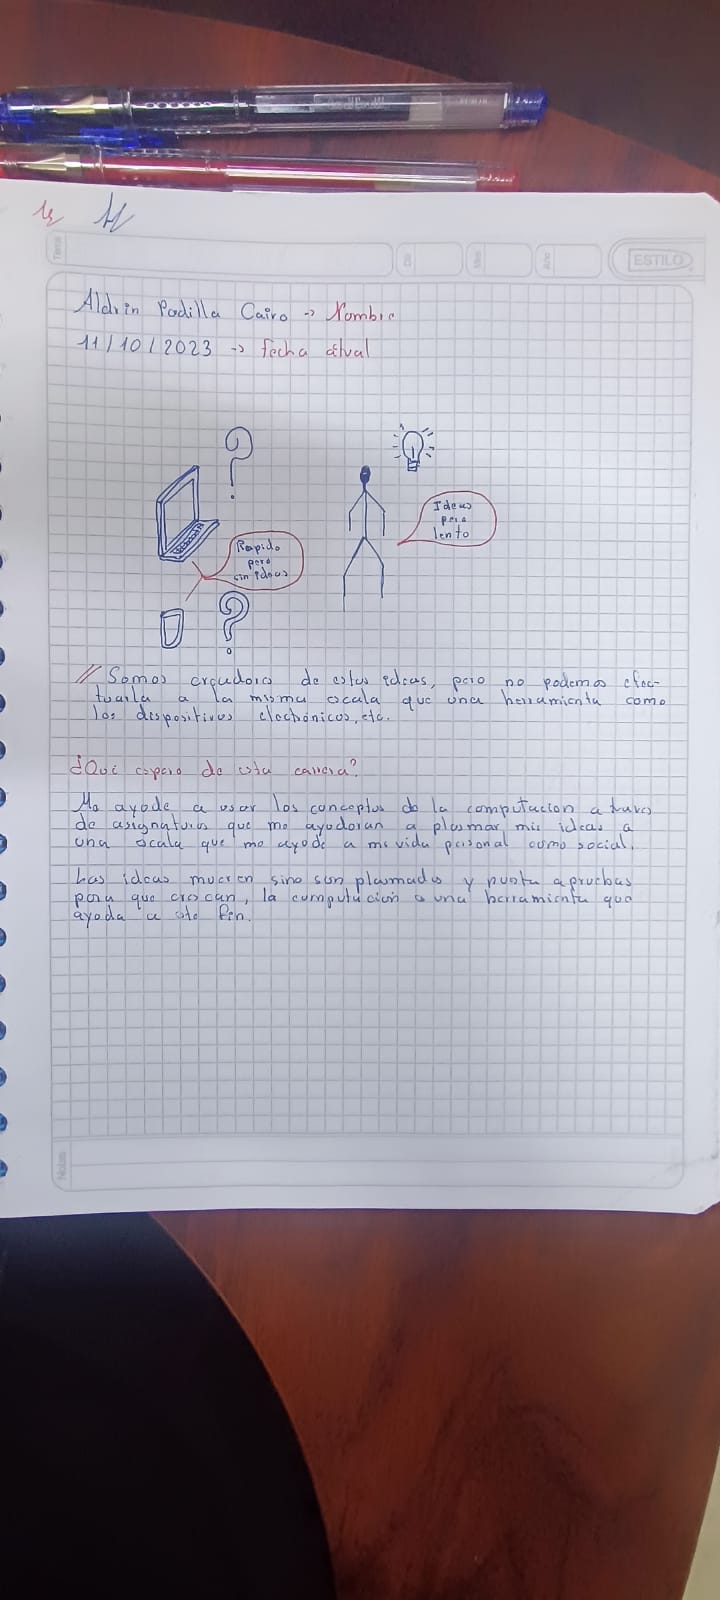 Tema
Día
Mes
Año
ESTILO
Aldrin Padilla Cairo -> Nombre
11/10/2023 -> fecha atual
Rapido
pero
sin ideas
Ideas
pero
lento
// Somos creadores de estas ideas, pero no podemos efec-
tuarla a la misma escala que una herramienta como
los dispositivos electrónicos, etc.
¿Qué espero de esta carrera?
Me ayude a usar los conceptos de la computacion a traves
de asignaturas que me ayudaran a plasmar mis ideas a
una escala que me ayude a mi vida personal como social.
Las ideas mueren sino son plasmadas y puesta a pruebas
para que crezcan, la computación es una herramienta que
ayuda a este fin.
Notas